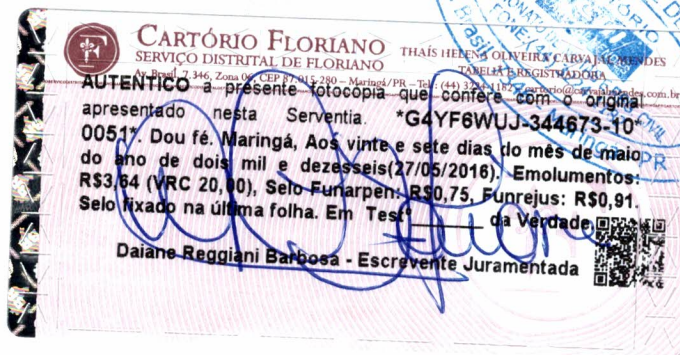 CARTÓRIO FLORIANO
SERVIÇO DISTRITAL DE FLORIANO
THAÍS HELENA OLIVEIRA CARVAJAL MENDES
TABELIÃ E REGISTRADORA
Av. Brasil, 7.346, Zona 06, CEP 87.015-280 – Maringá/PR – Tel.: (44)
AUTENTICO a presente fotocópia que confere com o original
apresentado nesta Serventia. *G4YF6WUJ-344673-10*
0051*. Dou fé. Maringá, Aos vinte e sete dias do mês de maio
do ano de dois mil e dezesseis(27/05/2016). Emolumentos:
R$3,64 (VRC 20,00), Selo Funarpen: R$0,75, Funrejus: R$0,91.
Selo fixado na última folha. Em Testº______ da Verdade
Daiane Reggiani Barbosa - Escrevente Juramentada